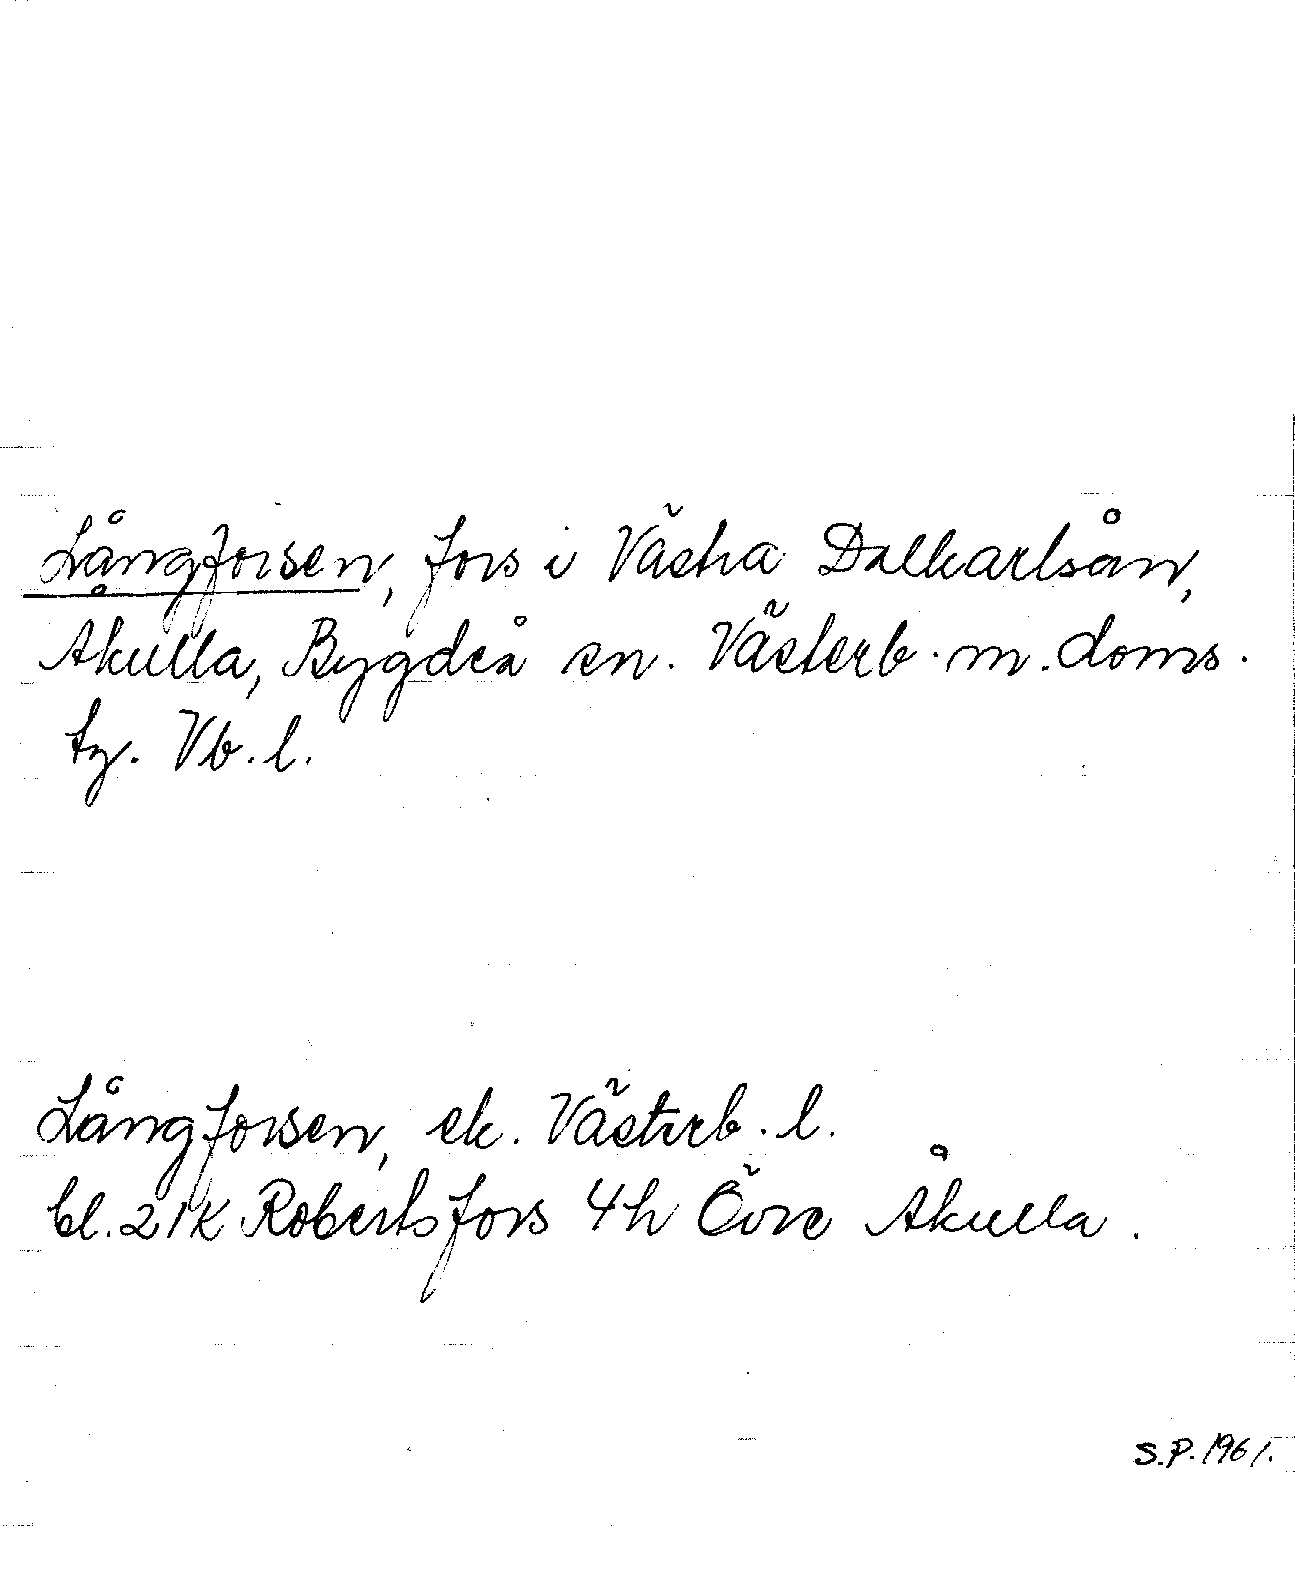 Långforsen, fors i Västra Dalkarlsån,
Åkulla, Bygdeå sn. Västerb. m. doms.
tg. Vb. l.
Långforsen, ek. Västerb. l.
bl. 21K Robertsfors 4h Övre Åkulla.
S.P. 1961.